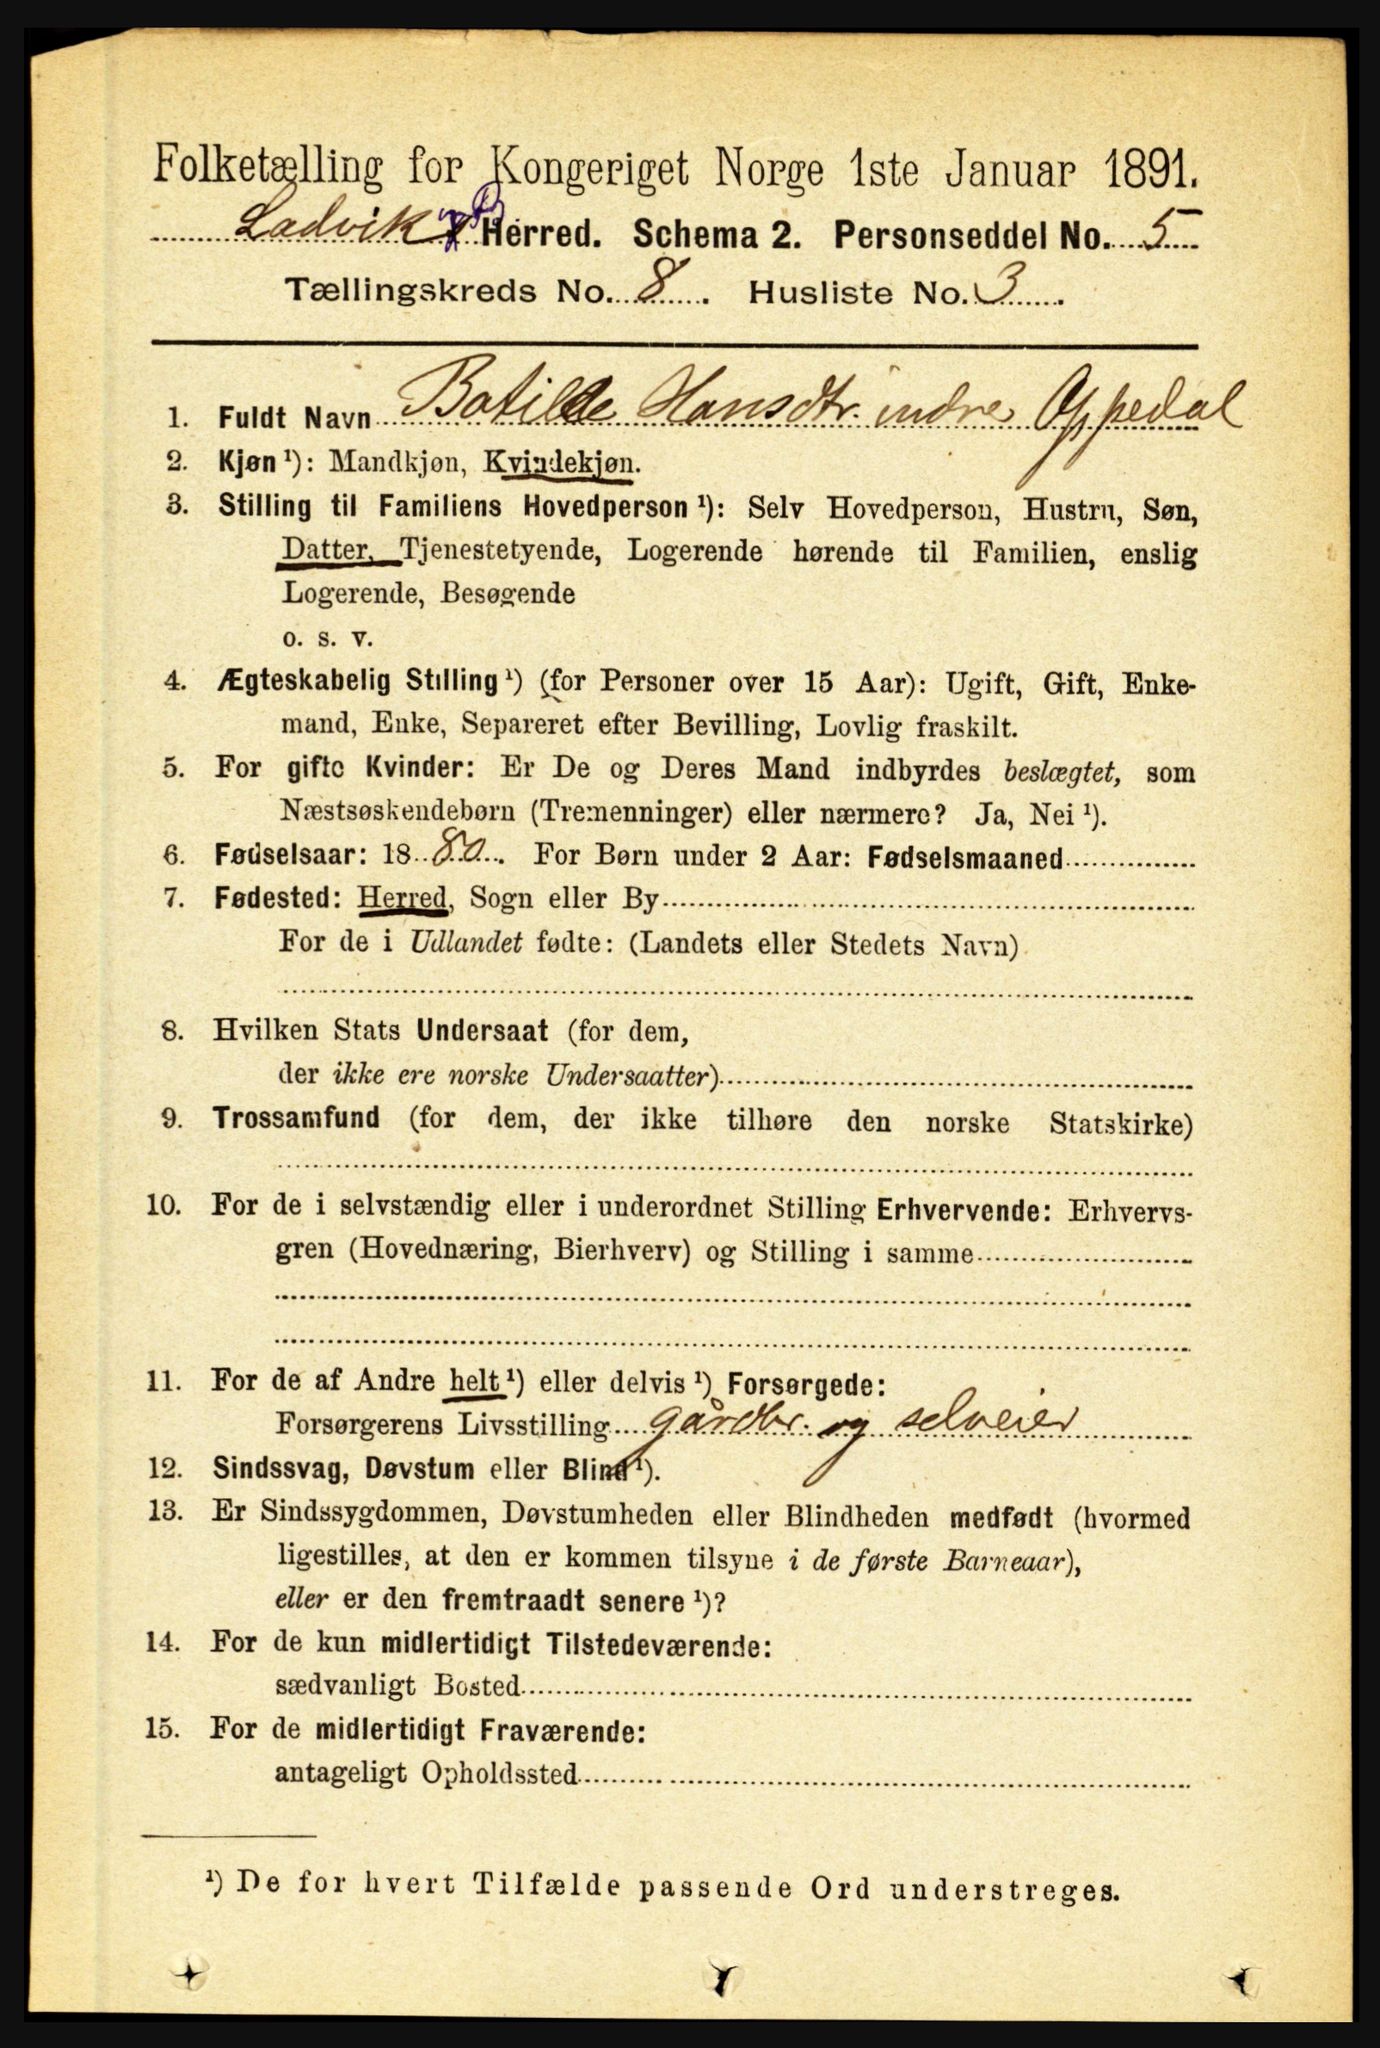 Folketælling for Kongeriget Norge 1ste Januar 1891.
Ladvik Herred. Schema 2. Personseddel No. 5
Tællingskreds No. 8. Husliste No. 3.
1. Fuldt Navn Botilde Hansdtr. indre Oppedal
2. Kjøn ¹): Mandkjøn, Kvindekjøn.
3. Stilling til Familiens Hovedperson ¹): Selv Hovedperson, Hustru, Søn,
Datter, Tjenestetyende, Logerende hørende til Familien, enslig
Logerende, Besøgende
o. s. v.
4. Ægteskabelig Stilling ¹) (for Personer over 15 Aar): Ugift, Gift, Enke-
mand, Enke, Separeret efter Bevilling, Lovlig fraskilt.
5. For gifte Kvinder: Er De og Deres Mand indbyrdes beslægtet, som
Næstsøskendebørn (Tremenninger) eller nærmere? Ja, Nei ¹).
6. Fødselsaar: 1880. For Børn under 2 Aar: Fødselsmaaned
7. Fødested: Herred, Sogn eller By
For de i Udlandet fødte: (Landets eller Stedets Navn)
8. Hvilken Stats Undersaat (for dem,
der ikke ere norske Undersaatter)
9. Trossamfund (for dem, der ikke tilhøre den norske Statskirke)
10. For de i selvstændig eller i underordnet Stilling Erhvervende: Erhvervs-
gren (Hovednæring, Bierhverv) og Stilling i samme
11. For de af Andre helt ¹) eller delvis ¹) Forsørgede:
Forsørgerens Livsstilling gårdbr. og selveier
12. Sindssvag, Døvstum eller Blind ¹).
13. Er Sindssygdommen, Døvstumheden eller Blindheden medfødt (hvormed
ligestilles, at den er kommen tilsyne i de første Barneaar),
eller er den fremtraadt senere ¹)?
14. For de kun midlertidigt Tilstedeværende:
sædvanligt Bosted
15. For de midlertidigt Fraværende:
antageligt Opholdssted
¹) De for hvert Tilfælde passende Ord understreges.